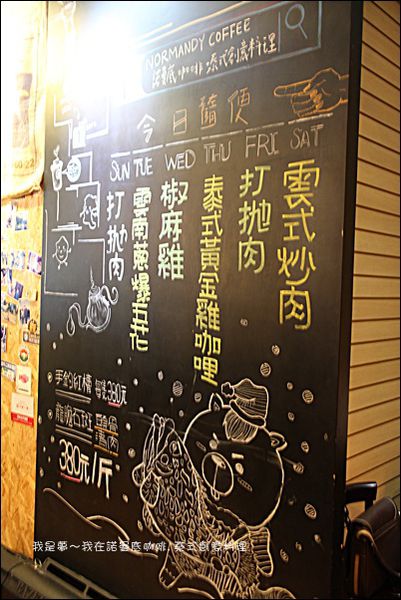 NORMANDY COFFEE
諾曼底咖啡 泰式創意料理
今日隨便
SUN TUE WED THU FRI SAT
打拋肉
雲南蔥爆五花
椒麻雞
泰式黃金雞咖哩
打拋肉
雲式炒肉
手釣紅糟
380元
龍膽石斑
380元/斤
我是夢～我在諾曼底咖啡,泰式創意料理